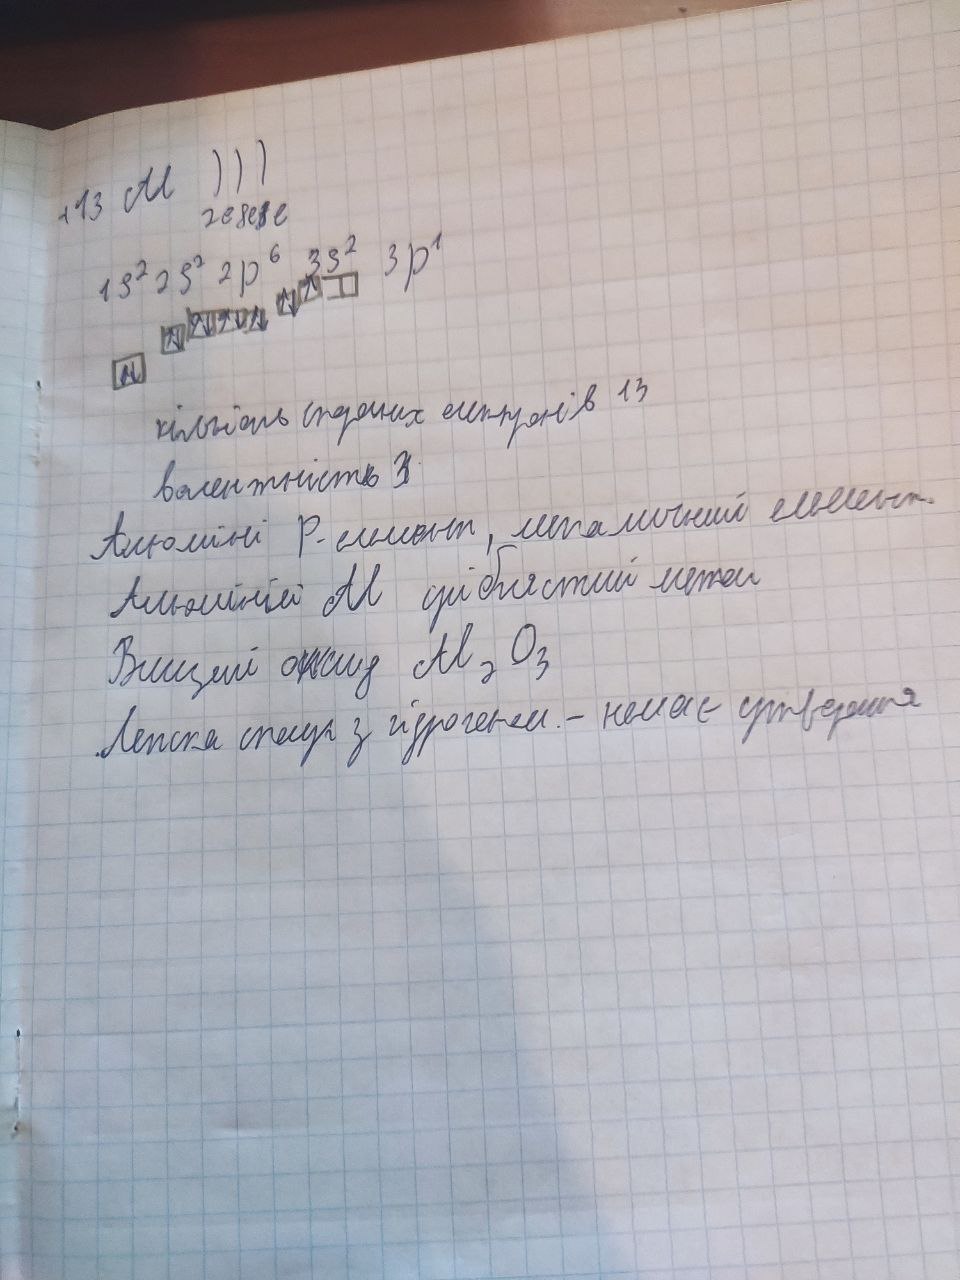 +13 Al )))
2e 8e 3e
1s² 2s² 2p⁶ 3s² 3p¹
кількість електронів 13
валентність 3
Алюміні р-елемент, металічний елемент.
Алюміній Al сріблястий метал
Вищий оксид Al₂O₃
Летка сполук з гідрогеном - немає